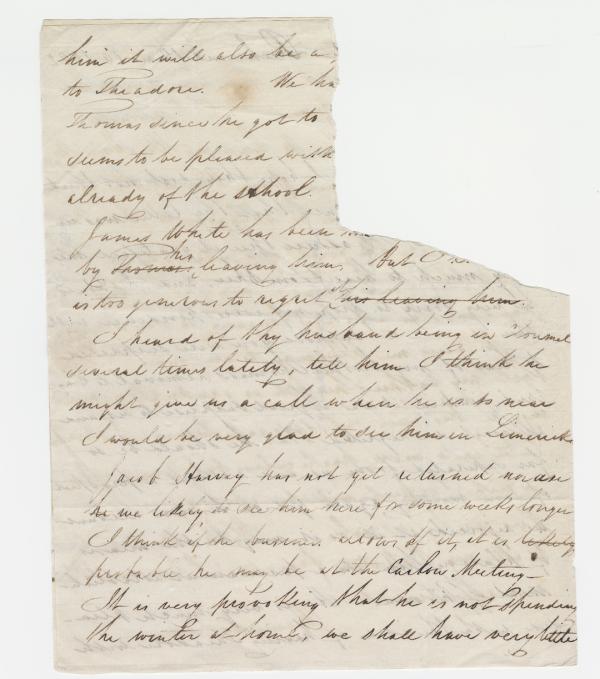 him it will also be a
to Theadore. We ha
Thomas since he got to
seems to be pleased with
already of the school.
James White has been
by Thomas his leaving him. But
is too generous to regret his leaving him.
I heard of thy husband being in
several times lately, tele him I think he
might give us a call when he is so near
I would be very glad to see him in Limerick
Jacob Harvey has not yet returned nor are
he we likely to see him here for some weeks longer
I think if he business allows of it, it is likely
probable he may be at the Carlow Meeting—
It is very provoking that he is not spending
the winter at home, we shall have very little